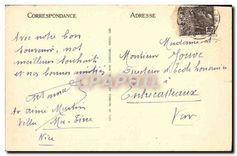 CORRESPONDANCE
ADRESSE
Avec notre bon
souvenir, nos
meilleurs souhaits
et nos bonnes amitiés
Aimé Martin
Villa
Nice
Madame et
Monsieur Jouve
Directeur d'École honoraire
à
Entrecasteaux
Var